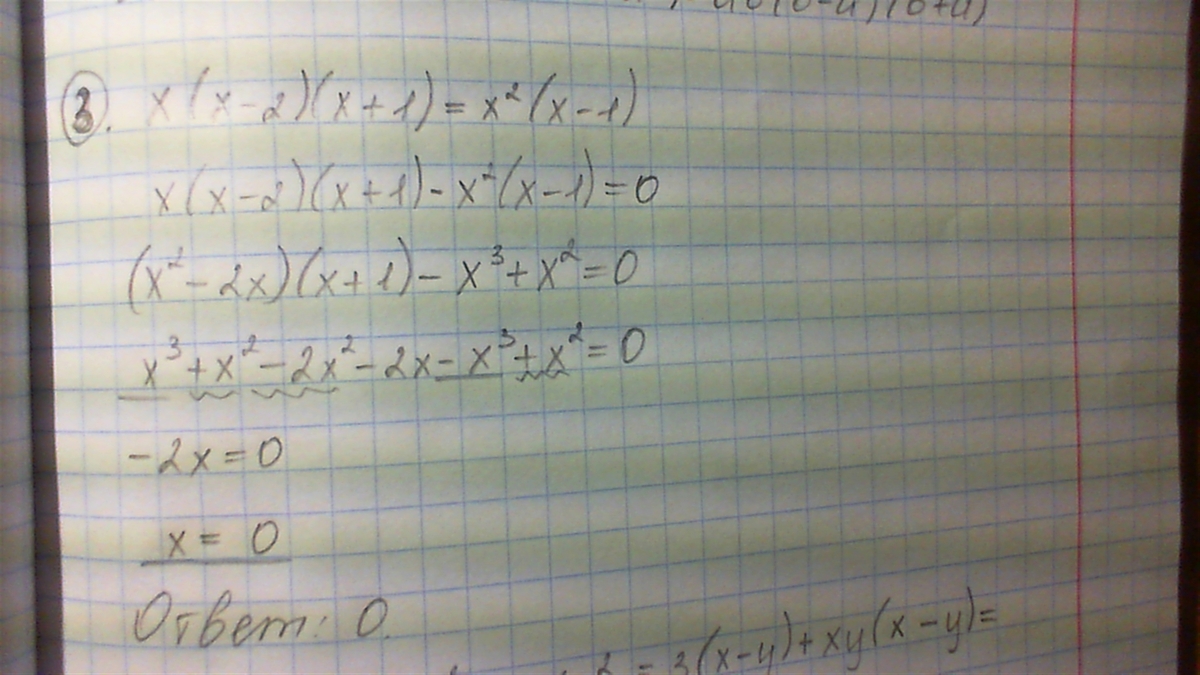 3. x(x-2)(x+1)=x²(x-1)
x(x-2)(x+1)-x²(x-1)=0
(x²-2x)(x+1)-x³+x²=0
x³+x²-2x²-2x-x³+x²=0
-2x=0
x=0
Ответ: 0.
3(x-y)+xy(x-y)=